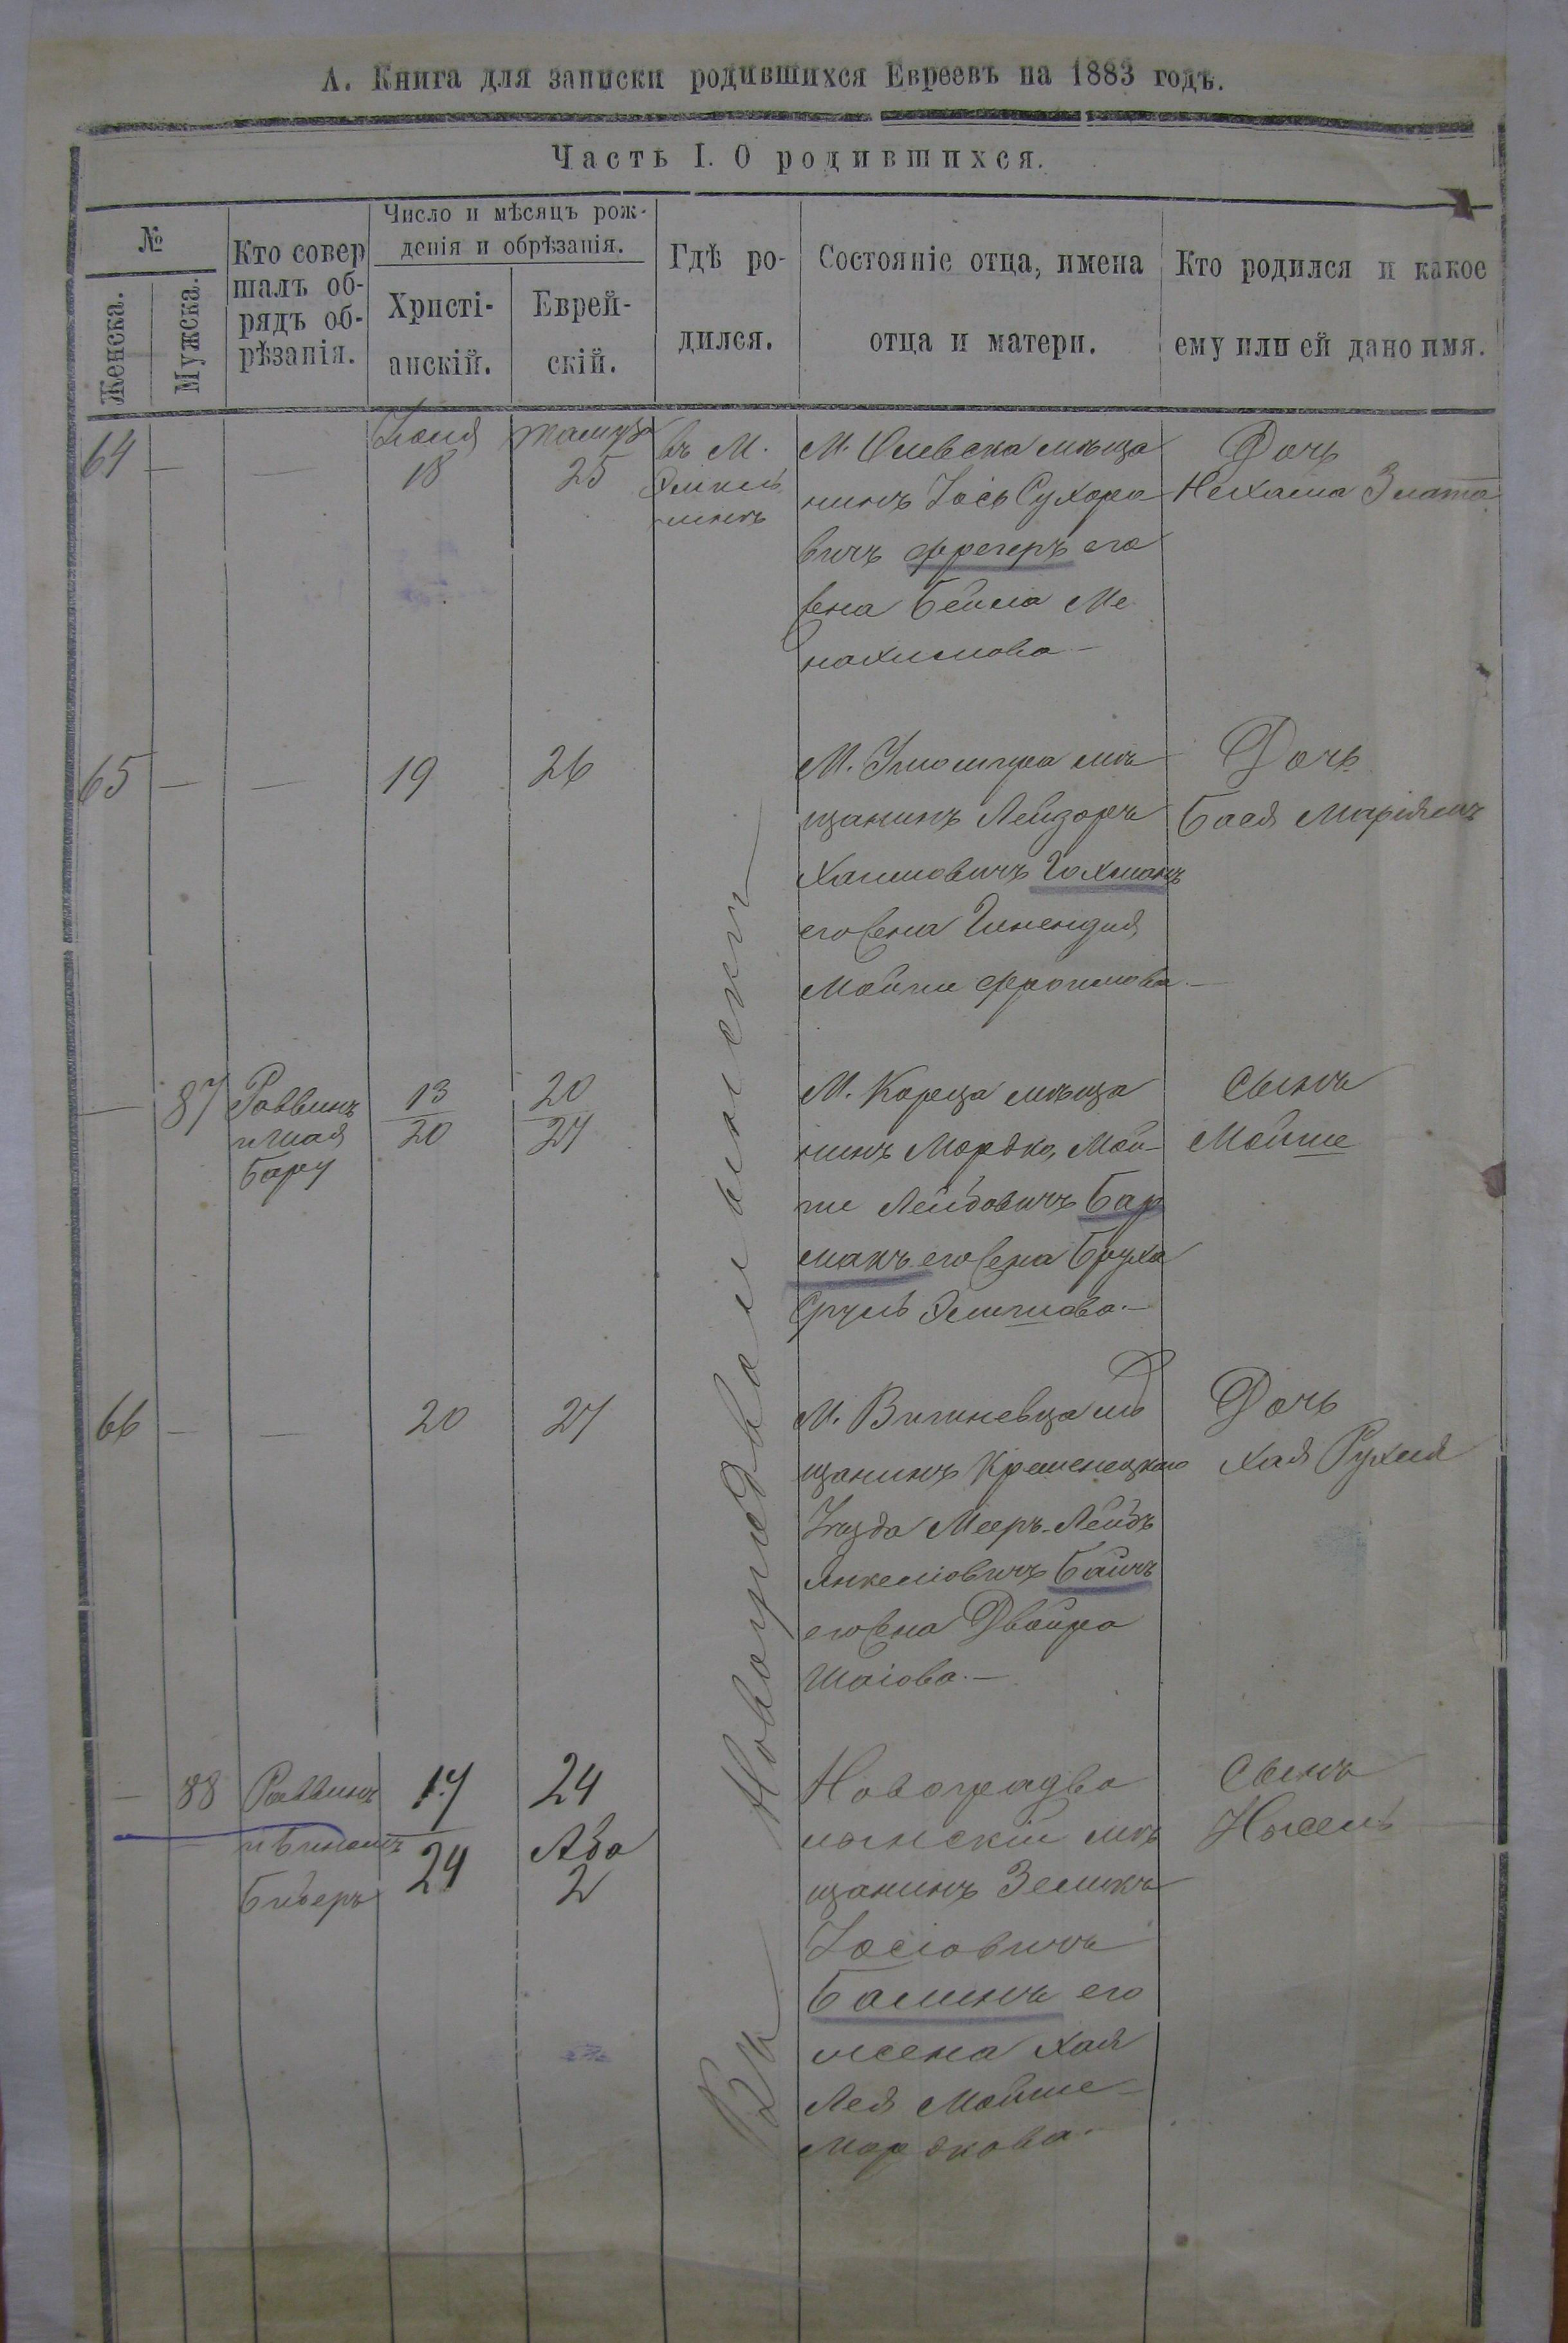 А. Книга для записки родившихся Евреевъ на 1883 годъ.
Часть I. О родившихся.
№
Женска.
Мужска.
Кто совер
шалъ об-
рядъ об-
рѣзанія.
Число и мѣсяцъ рож-
денія и обрѣзанія.
Христі-
анскій.
Еврей-
скій.
Гдѣ ро-
дился.
Состояніе отца, имена
отца и матери.
Кто родился и какое
ему или ей дано имя.
64 — —
Іюля
18
Тамуза
25
въ М.
М. Олевска мѣща
нинъ Іось Сухоро
вичъ Фрегеръ его
жена Бейла Ме
нахимова —
Дочь
Нехама Злата
65 — — 19 26
щанинъ Лейзоръ
Хаимовичъ Гохманъ
его жена
Мойше Фроимова —
Дочь
Бася Маріямъ
— 87
Раввинъ
и Шая
Бару
13
20
20
27
М. Кореца мѣща
нинъ Мордко, Мой-
ше Лейбовичъ Бар
манъ его жена Бруха
Сруль
Сынъ
Мойше
66 — — 20 27
М. Вишневца мѣ
щанинъ Кременецкаго
Уѣзда Мееръ-Лейбъ
Янкеліовичъ
его жена Двойра
Шаіова —
Дочь
Хая Рухля
— 88
Раввинъ
Биберъ
17
24
24
Аба
2
Новоградво
лынскій мѣ
щанинъ Зеликъ
Іосіовичъ
его
жена Хая
Лея Мойше-
Мордкова.
Сынъ
Нысель
Въ Новоградволынскѣ